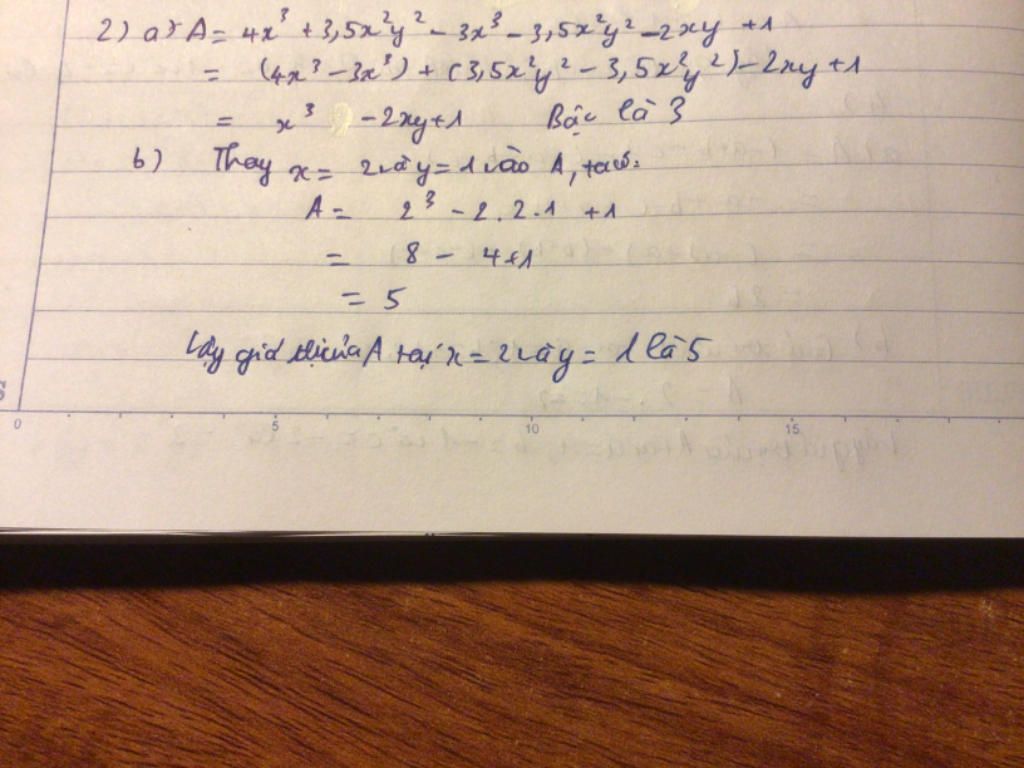 2) a) A = 4x³ + 3,5x²y² - 3x³ - 3,5x²y² - 2xy + 1
= (4x³ - 3x³) + (3,5x²y² - 3,5x²y²) - 2xy + 1
= x³ - 2xy + 1 Bậc là 3
b) Thay x = 2 và y = 1 vào A, ta có:
A = 2³ - 2.2.1 + 1
= 8 - 4 + 1
= 5
Vậy giá trị của A tại x = 2 và y = 1 là 5
0 5 10 15